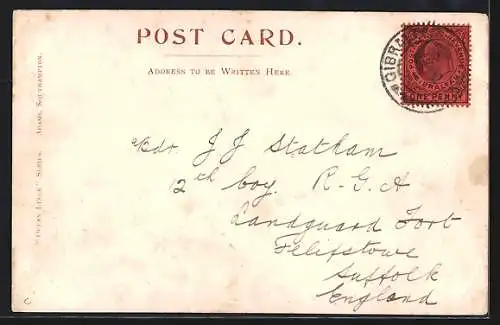 POST CARD.
ADDRESS TO BE WRITTEN HERE.
GIBR
ONE PENNY
Bdr. J J Statham
12th Coy. R.G.A
Landguard Fort
Felixstowe
Suffolk
England
SERIES. ADAMS, SOUTHAMPTON.